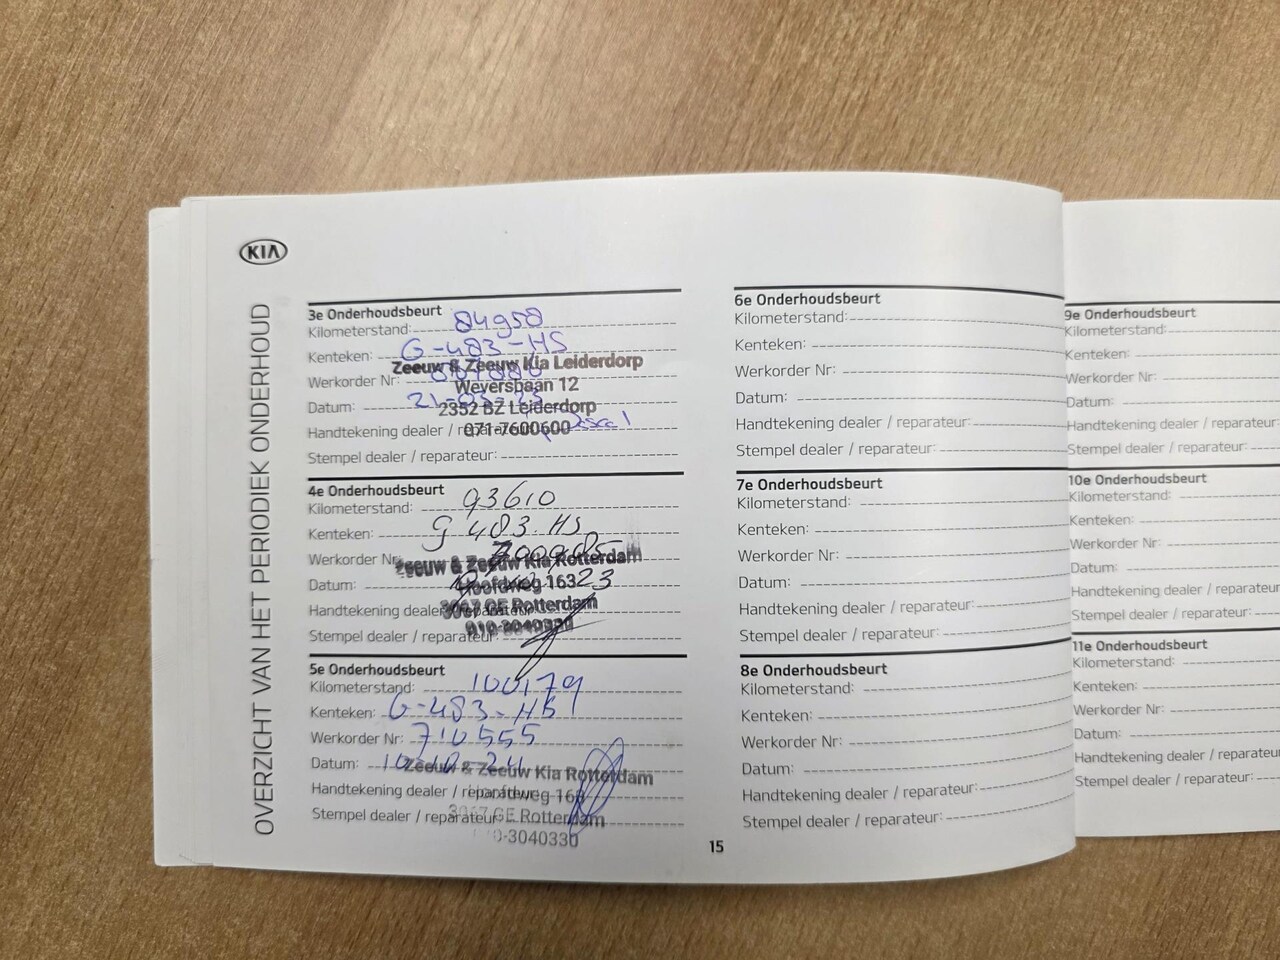 KIA
OVERZICHT VAN HET PERIODIEK ONDERHOUD
3e Onderhoudsbeurt
Kilometerstand: 84958
Kenteken: G-483-HS
Zeeuw & Zeeuw Kia Leiderdorp
Werkorder Nr:
Weversbaan 12
Datum: 21-03-23
2352 BZ Leiderdorp
Handtekening dealer / reparateur:
071-7600600
Stempel dealer / reparateur:
4e Onderhoudsbeurt
Kilometerstand: 93610
Kenteken: G 483.HS
Werkorder Nr:
Zeeuw & Zeeuw Kia Rotterdam
Datum: 23
Hoofdweg 163
Handtekening dealer / reparateur:
3067 GE Rotterdam
010-3040330
Stempel dealer / reparateur:
5e Onderhoudsbeurt
Kilometerstand: 100179
Kenteken: G-483-HS
Werkorder Nr: 710555
Datum: 10-10-24
Zeeuw & Zeeuw Kia Rotterdam
Handtekening dealer / reparateur:
Hoofdweg 163
Stempel dealer / reparateur:
3067 GE Rotterdam
010-3040330
15
6e Onderhoudsbeurt
Kilometerstand:
Kenteken:
Werkorder Nr:
Datum:
Handtekening dealer / reparateur:
Stempel dealer / reparateur:
7e Onderhoudsbeurt
Kilometerstand:
Kenteken:
Werkorder Nr:
Datum:
Handtekening dealer / reparateur:
Stempel dealer / reparateur:
8e Onderhoudsbeurt
Kilometerstand:
Kenteken:
Werkorder Nr:
Datum:
Handtekening dealer / reparateur:
Stempel dealer / reparateur:
9e Onderhoudsbeurt
Kilometerstand:
Kenteken:
Werkorder Nr:
Datum:
Handtekening dealer / reparateur:
Stempel dealer / reparateur:
10e Onderhoudsbeurt
Kilometerstand:
Kenteken:
Werkorder Nr:
Datum:
Handtekening dealer / reparateur:
Stempel dealer / reparateur:
11e Onderhoudsbeurt
Kilometerstand:
Kenteken:
Werkorder Nr:
Datum:
Handtekening dealer / reparateur:
Stempel dealer / reparateur: